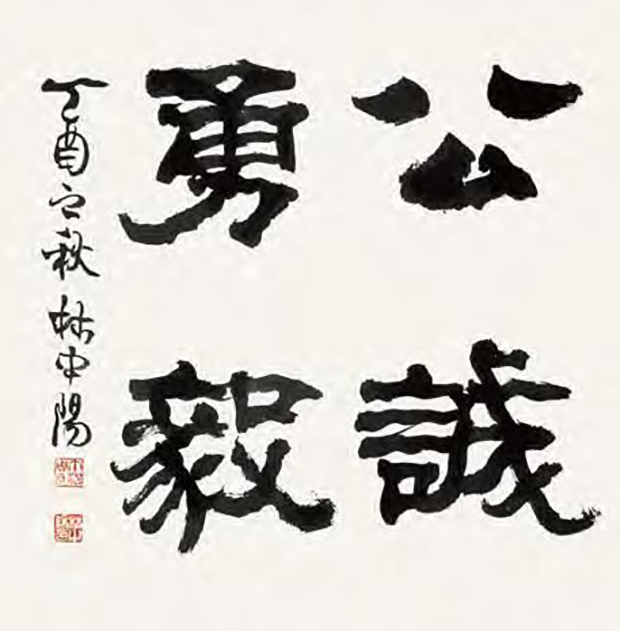 公誠
勇毅
丁酉之秋 林中陽